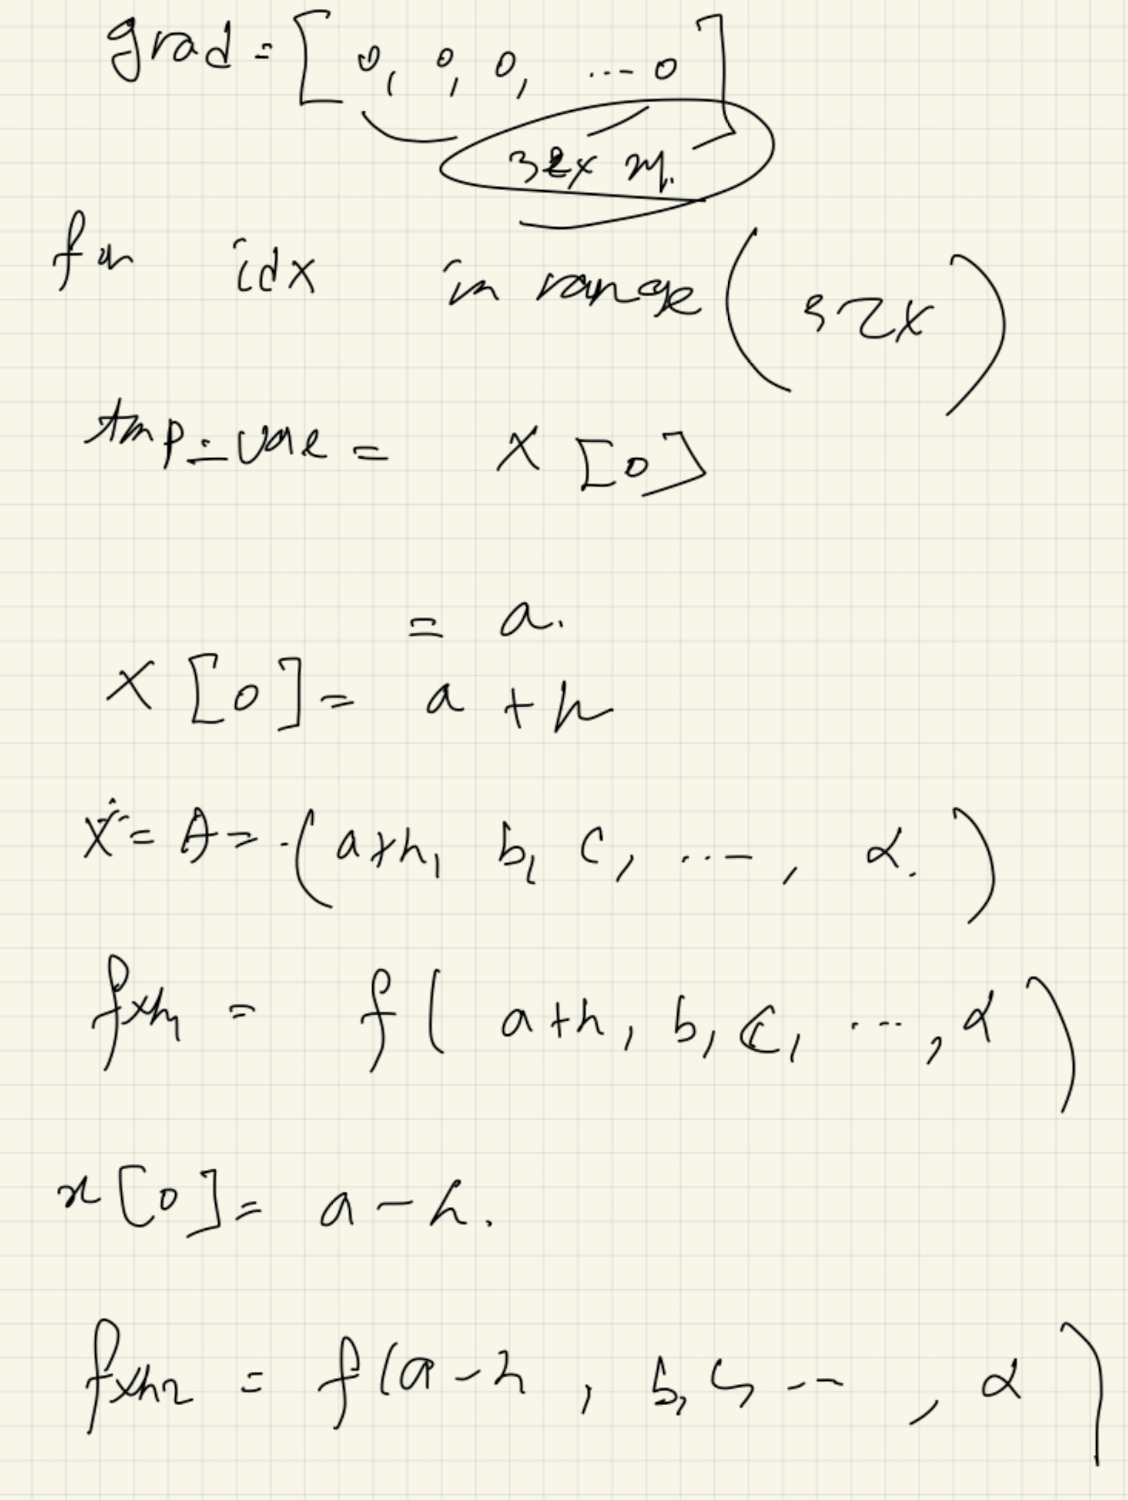 grad = [ 0, 0, 0, ... 0 ]
for idx in range ( szx )
tmp_val = X [0]
= a.
X [0] = a + h
X = A = ( a+h, b, c, ..., α. )
fxh1 = f( a+h, b, c, ..., α )
x [0] = a - h.
fxh2 = f(a-h , b, c, ... , α )